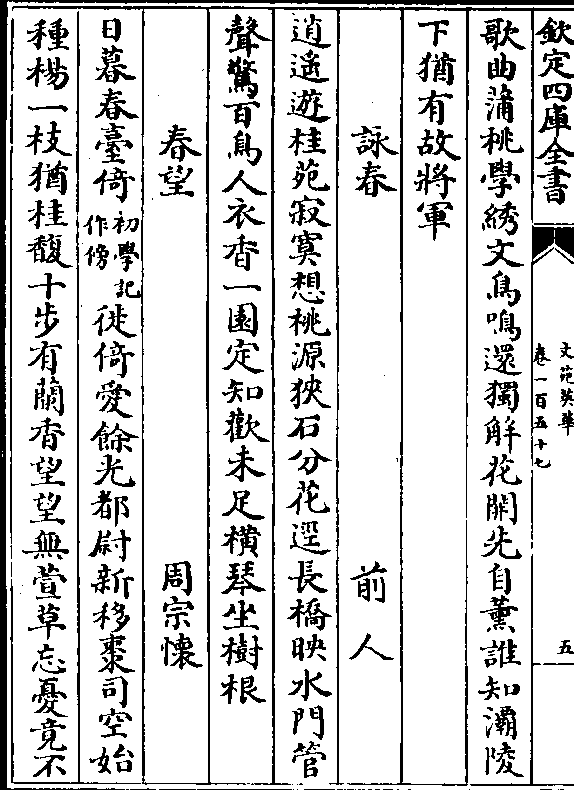 欽定四庫全書
文苑英華
卷一百五十七
五
歌曲蒲桃學綉文鳥鳴還獨解花開先自薰誰知灞陵
下猶有故將軍
詠春 前人
逍遥遊桂苑寂寞想桃源狹石分花逕長橋映水門管
聲驚百鳥人衣香一園定知歡未足橫琴坐樹根
春望 周宗懷
日暮春臺倚初學記作傍徙倚愛餘光都尉新移棗司空始
種楊一枝猶桂馥十步有蘭香望望無萱草忘憂竟不